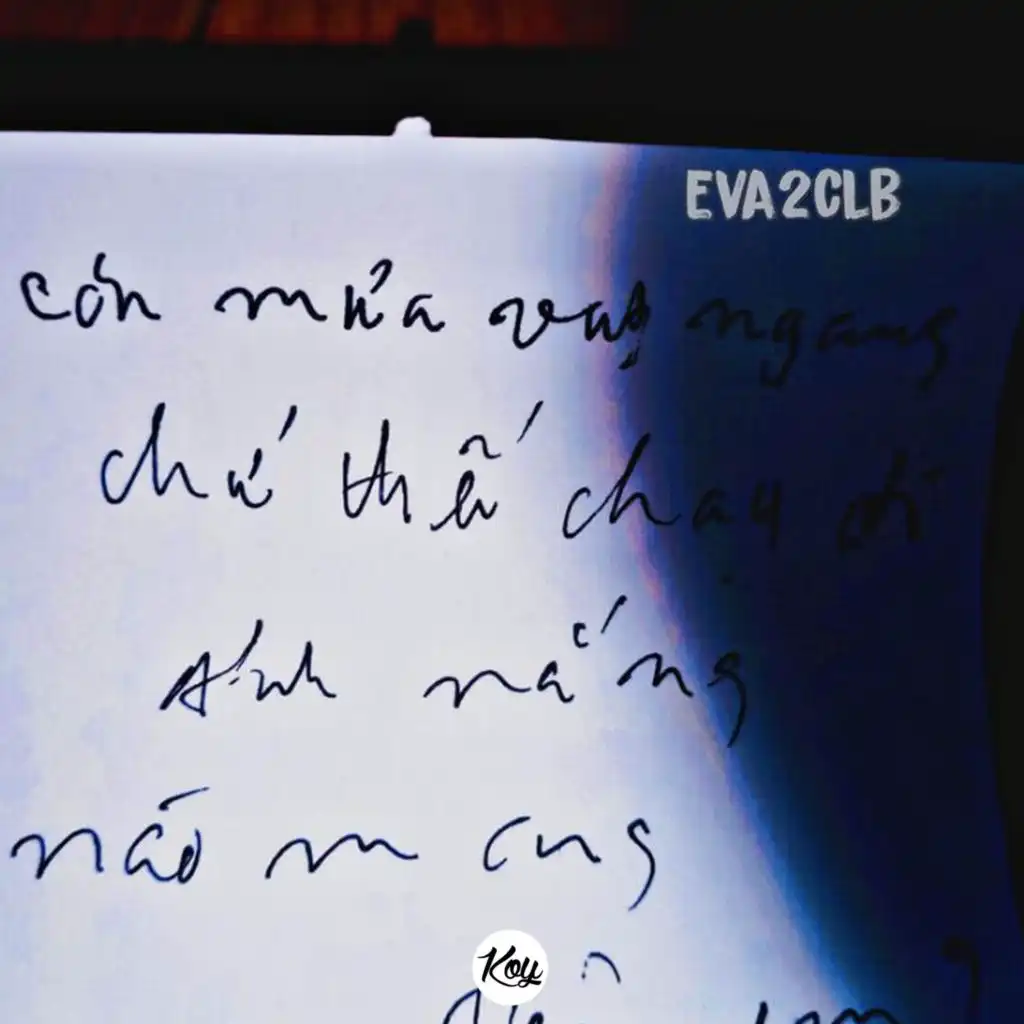 EVA2CLB
cón mứa vag ngang
chứ thế chạy đi
Ánh nắng
nào m cng
Koy